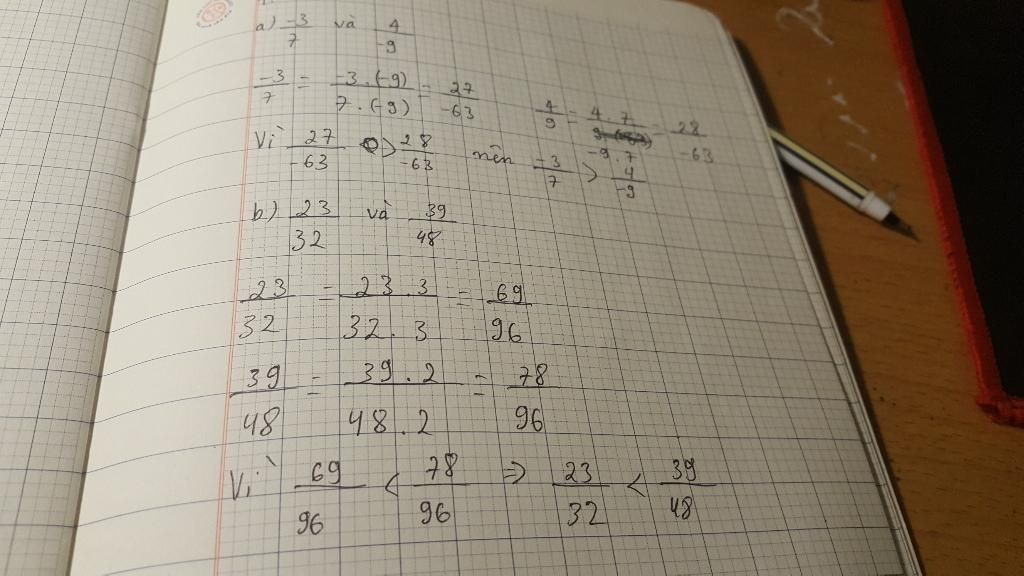 a) -3/7 và 4/-9
-3/7 = -3.(-9)/7.(-9) = 27/-63 4/9 = 4.7/-9.7 = 28/-63
Vì 27/-63 > 28/-63 nên -3/7 > 4/-9
b) 23/32 và 39/48
23/32 = 23.3/32.3 = 69/96
39/48 = 39.2/48.2 = 78/96
Vì 69/96 < 78/96 => 23/32 < 39/48